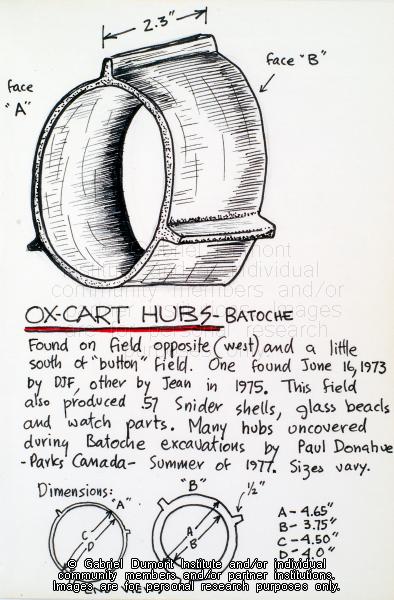 2.3"
face "B"
face
"A"
OX-CART HUBS - BATOCHE
Found on field opposite (west) and a little
south of "button" field. One found June 16, 1973
by DJF, other by Jean in 1975. This field
also produced .57 Snider shells, glass beads
and watch parts. Many hubs uncovered
during Batoche excavations by Paul Donahue
- Parks Canada - Summer of 1977. Sizes vary.
Dimensions:
"A"
"B"
1/2"
C
D
A
B
A - 4.65"
B - 3.75"
C - 4.50"
D - 4.0"
© Gabriel Dumont Institute and/or individual
community members and/or partner institutions.
Images are for personal research purposes only.